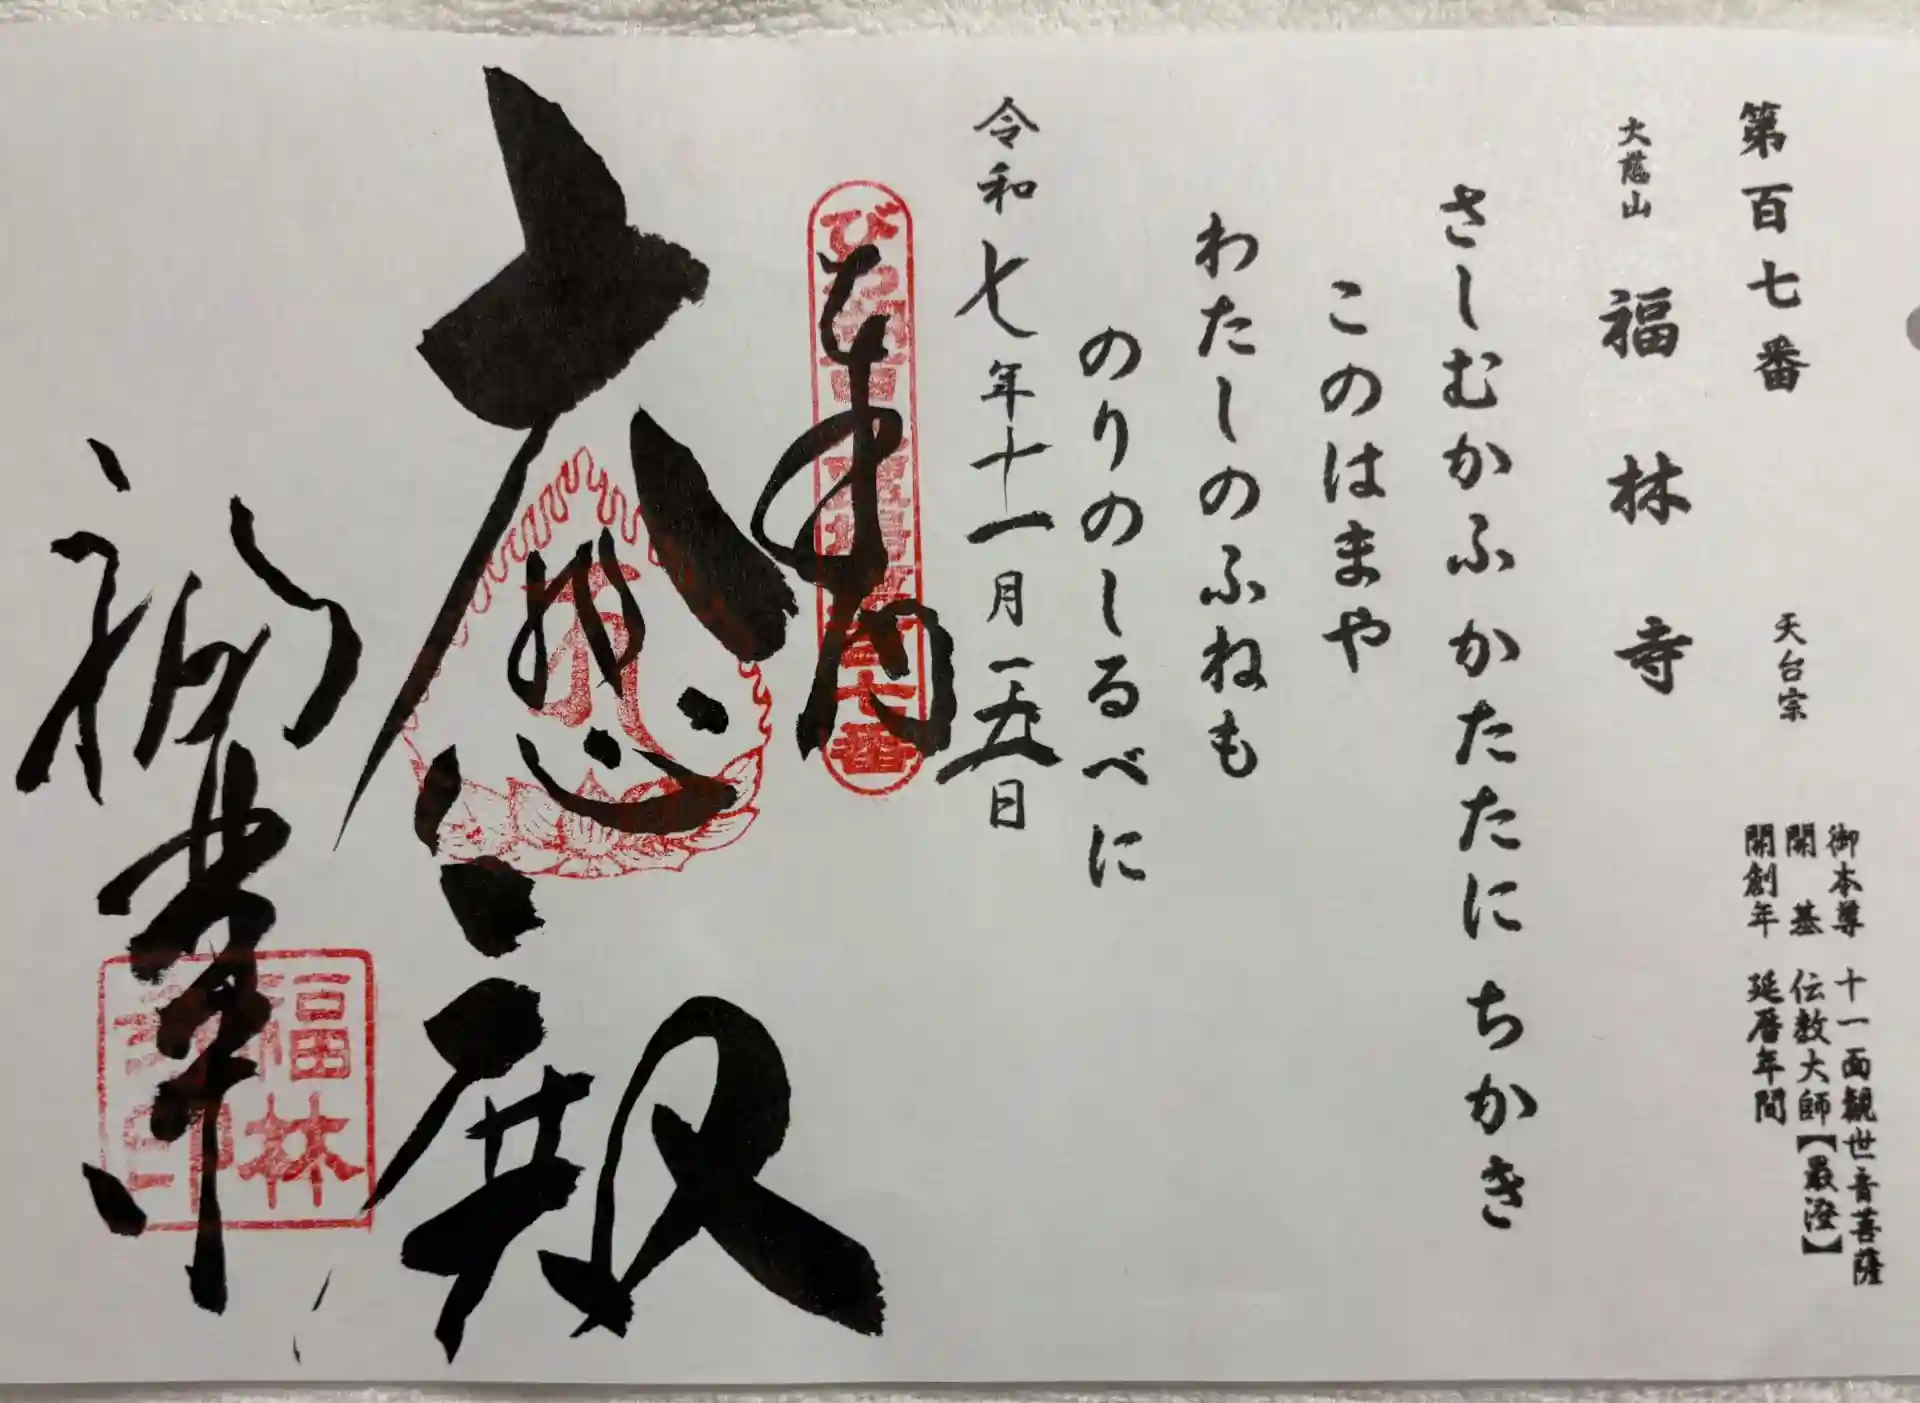 第百七番
天台宗
御本尊 十一面観世音菩薩
開基 伝教大師【最澄】
開創年 延暦年間
大慈山 福林寺
さしむかふかたたにちかき
このはまや
わたしのふねも
のりのしるべに
令和七年十一月一五日
奉拝
びわ湖百八霊場第百七番
大悲殿
福林寺
福林寺印